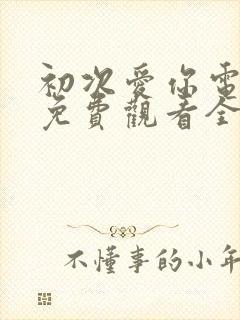 初次愛你電
免費觀看全
不懂事的小年